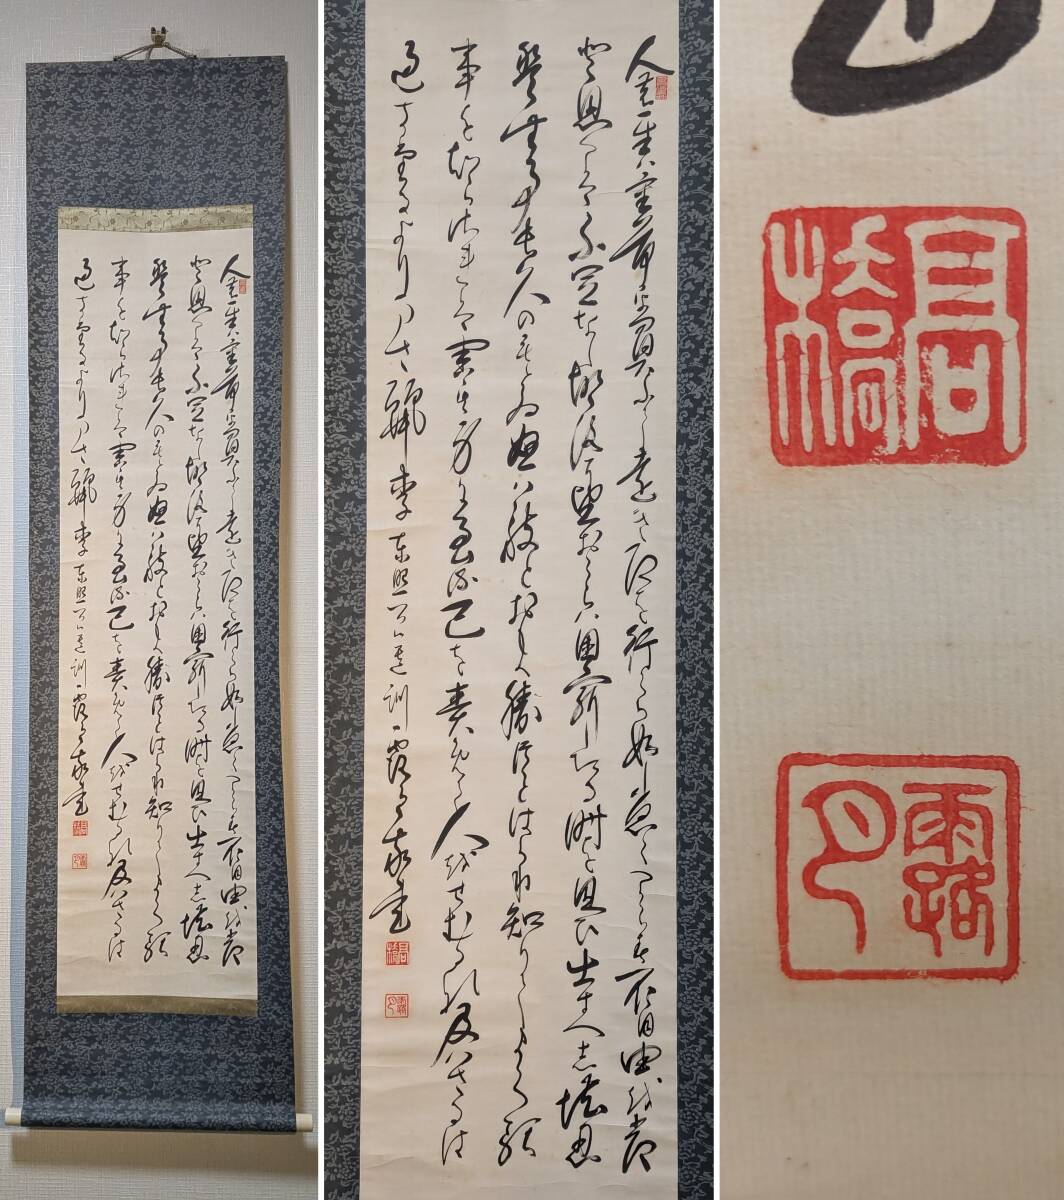 人の一生ハ重荷を負ふて遠き道を行くか如し急くへからす不自由を常
と思へは不足なし心に望おこらハ困窮したる時を思ひ出すへし堪忍
は無事長久のもとゐ怒ハ敵とおもへ勝事はかり知りてまくる
事を知らされは害其身に至る己を責めて人をせむるな及ハさるは
過たるよりまされり
東照公遺訓
書
高橋
露月